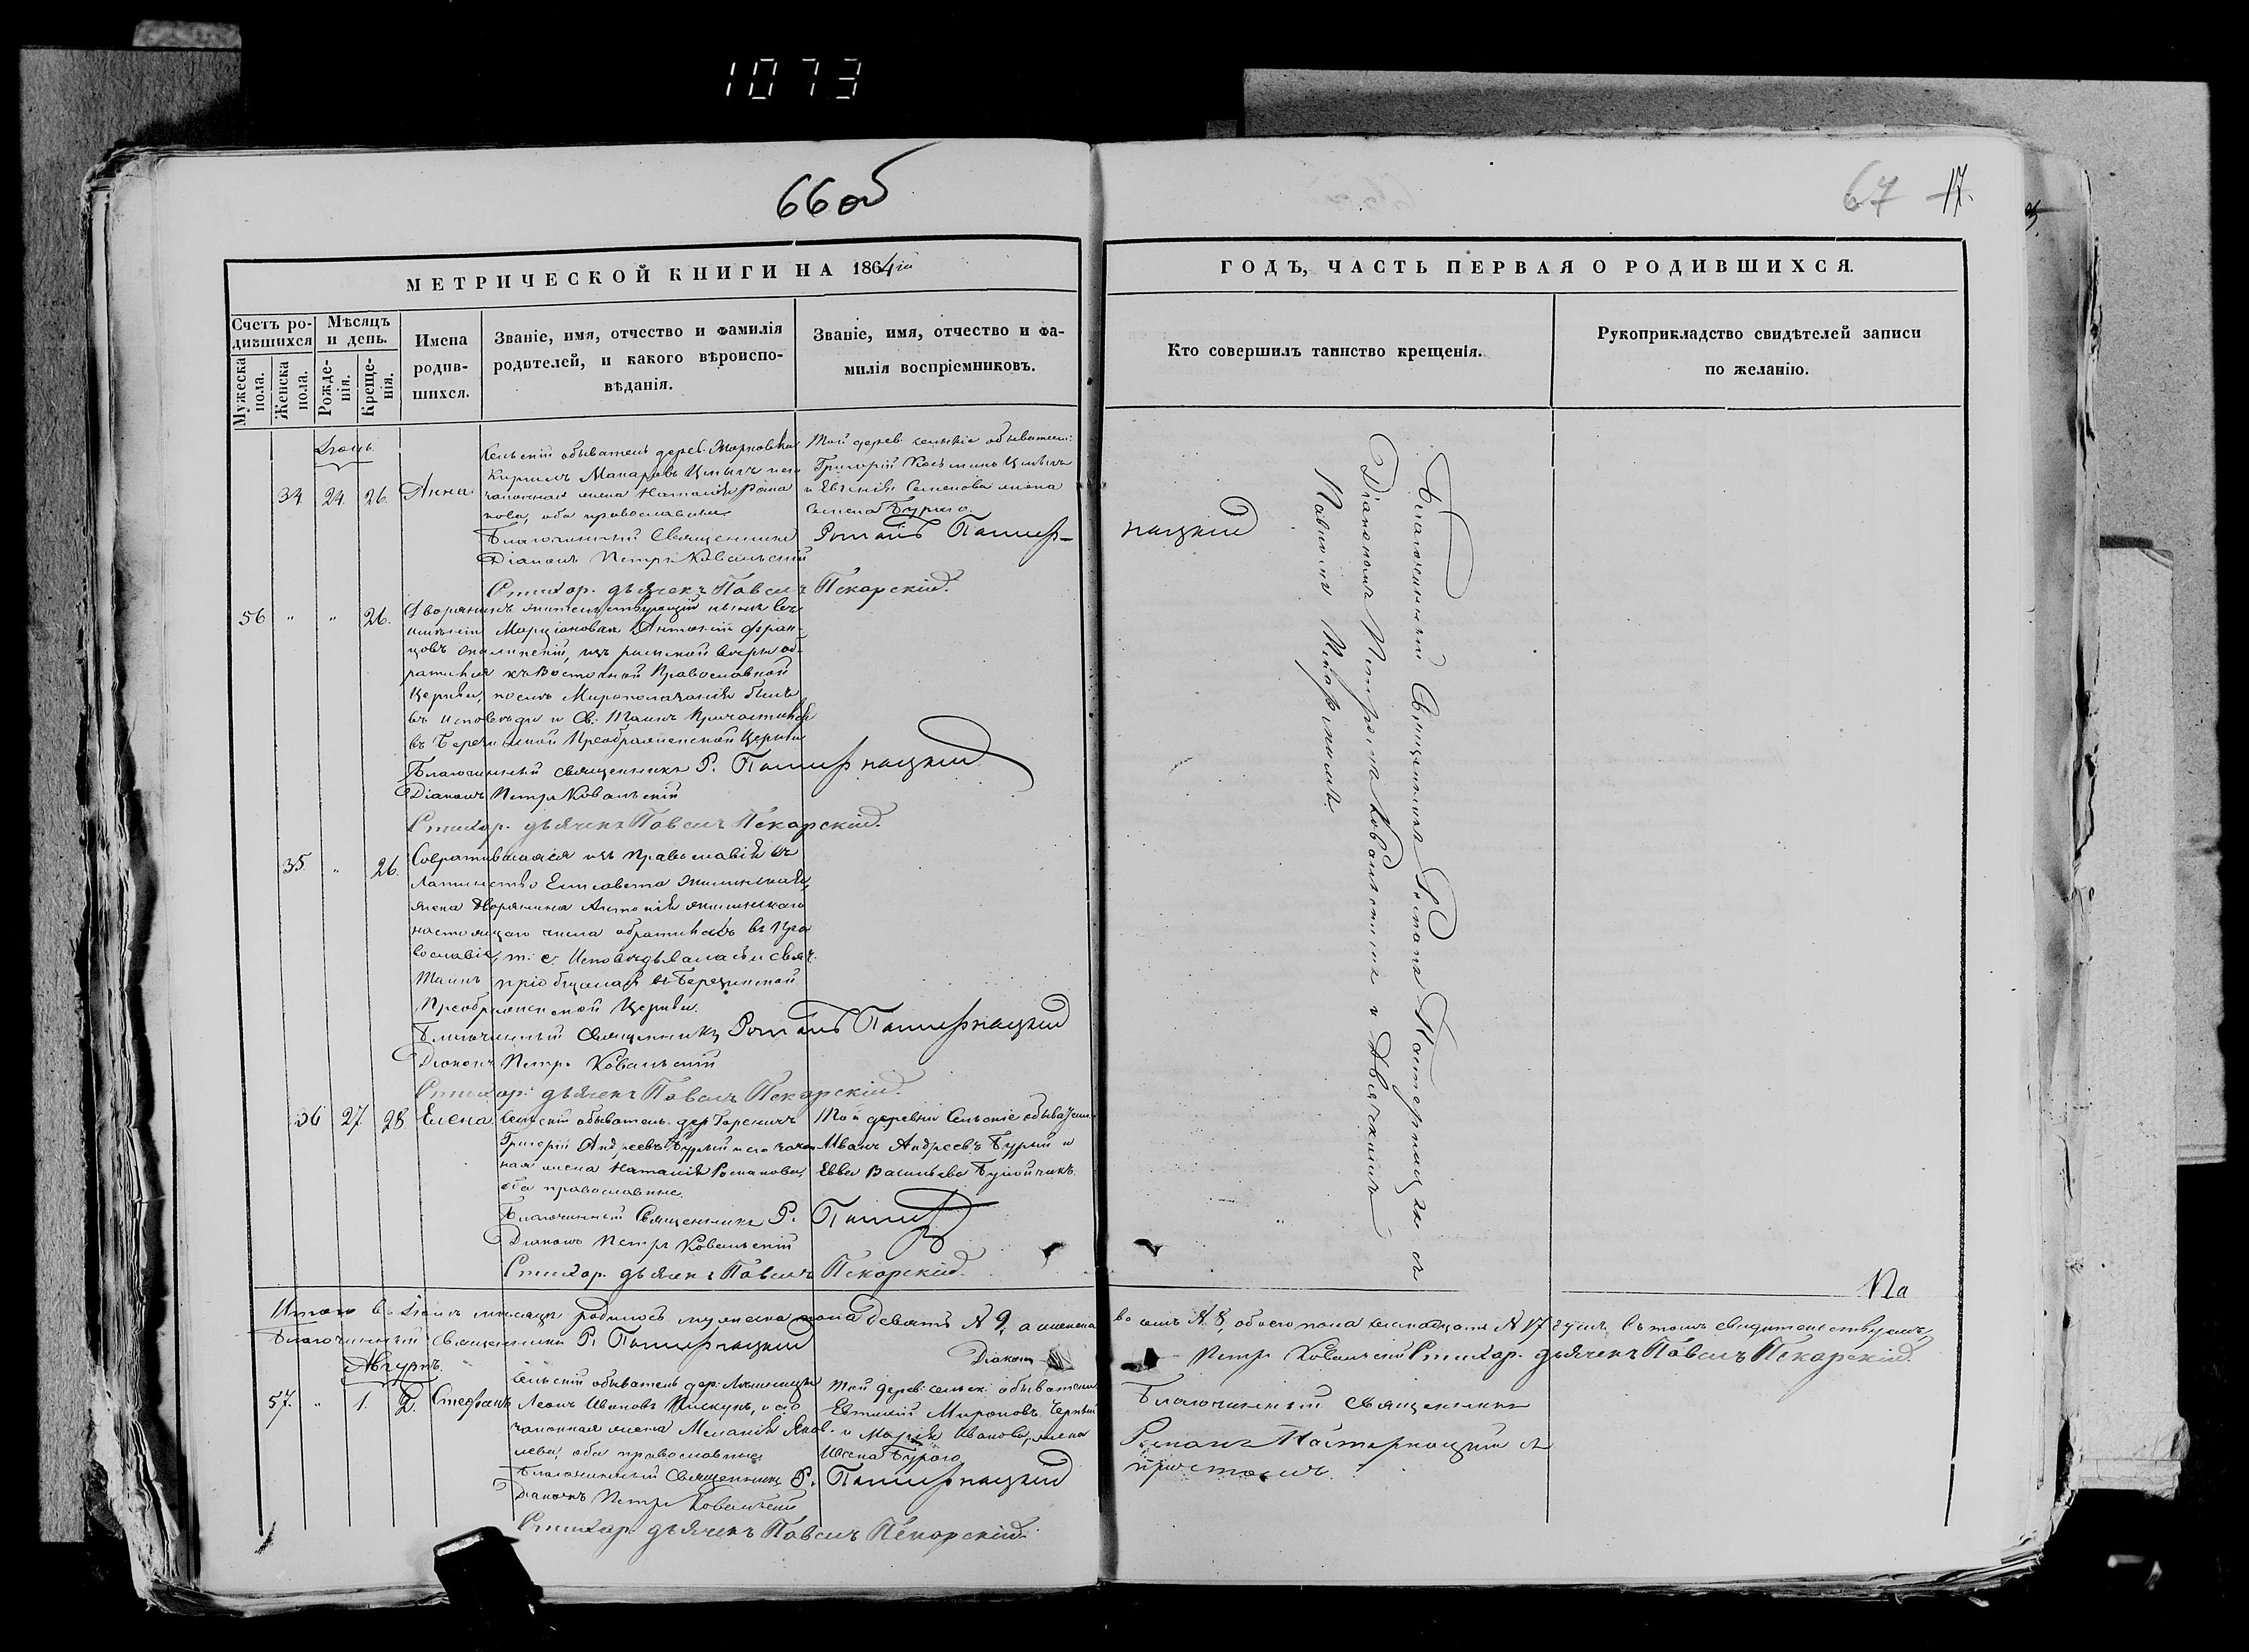 1073
66об
67 17.
МЕТРИЧЕСКОЙ КНИГИ НА 1864й
Счетъ родившихся
Мужеска пола.
Женска пола.
Мѣсяцъ и день.
Рожденія.
Крещенія.
Имена родившихся.
Званіе, имя, отчество и фамилія
родителей, и какого вѣроиспо-
вѣданія.
Званіе, имя, отчество и фа-
милія воспріемниковъ.
Іюль.
34 24. 26. Анна
Сельскій обыватель дерев.
Кириллъ Макаровъ и его
законная жена Наталія Рома
нова, оба православные
Той дерев. сельскіе обыватели:
Григорій Косьминъ
и Евгенія Семенова жена
Семена Бураго.
Благочинный Священникъ Романъ Пастер-
Діаконъ Петръ Ковальскій
Стихар. дьячекъ Павелъ Пекарскій.
56 " " 26.
Дворянинъ жительствующій нынѣ въ
имѣніи Антоній Фран-
цовъ Жилинскій, изъ римской вѣры об-
ратился къ Восточной Православной
Церкви, послѣ Миропомазанія былъ
въ исповѣди и Св. Таинъ Причастился
въ Березинской Преображенской Церкви
Благочинный священникъ Р. Пастернацкій
Діаконъ Петръ Ковальскій
Стихар. дьячекъ Павелъ Пекарскій.
35 " 26.
Совратившаяся изъ Православія въ
Латинство Елисавета Жилинская,
жена дворянина Антонія Жилинскаго
настоящаго числа обратилась въ Пра
вославіе, т. е. Исповѣдывалась и свят.
Таинъ пріобщалась въ Березинской
Преображенской Церкви.
Благочинный Священникъ Романъ Пастернацкій
Діаконъ Петръ Ковальскій
Стихар. дьячекъ Павелъ Пекарскій.
36 27. 28. Елена
Сельскій обыватель дер.
Григорій Андреевъ Бурый и его закон
ная жена Наталія Романова,
оба православные.
Той деревни Сельскіе обыватели
Иванъ Андреевъ Бурый и
Евва Васильева
Благочинный Священникъ Р. Пастер
Діаконъ Петръ Ковальскій
Стихар. дьячекъ Павелъ Пекарскій.
Итого въ Іюлѣ мѣсяцѣ родилось мужеска пола девять № 9, а женска
Благочинный Священникъ Р. Пастернацкій Діаконъ
Августъ.
57. " 1. 2. Стефанъ
Сельскій обыватель дер.
Леонъ Ивановъ и его
законная жена Меланія Яков-
лева, оба православные
Той дерев. сельск. обыватели
Евтихій Мироновъ Черный
и Марія Иванова, жена
Ивана Бураго
Благочинный Священникъ Р. Пастернацкій
Діаконъ Петръ Ковальскій
Стихар. дьячекъ Павелъ Пекарскій.
ГОДЪ, ЧАСТЬ ПЕРВАЯ О РОДИВШИХСЯ.
Кто совершилъ таинство крещенія.
Рукоприкладство свидѣтелей записи
по желанію.
нацкій
Благочинный Священникъ Романъ Пастернацкій съ
Діакономъ Петромъ Ковальскимъ и Дьячкомъ
Павломъ Пекарскимъ.
На
восемь № 8, обоего пола семнадцать № 17 душъ, въ томъ свидѣтельствуемъ,
Петръ Ковальскій Стихар. дьячекъ Павелъ Пекарскій.
Благочинный Священникъ
Романъ Пастернацкій съ
причтомъ.